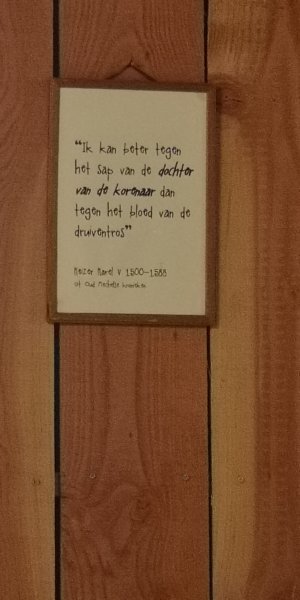 “Ik kan beter tegen
het sap van de dochter
van de korenaar dan
tegen het bloed van de
druiventros”
Keizer Karel V 1500-1558
uit Oud Mechelse kronieken